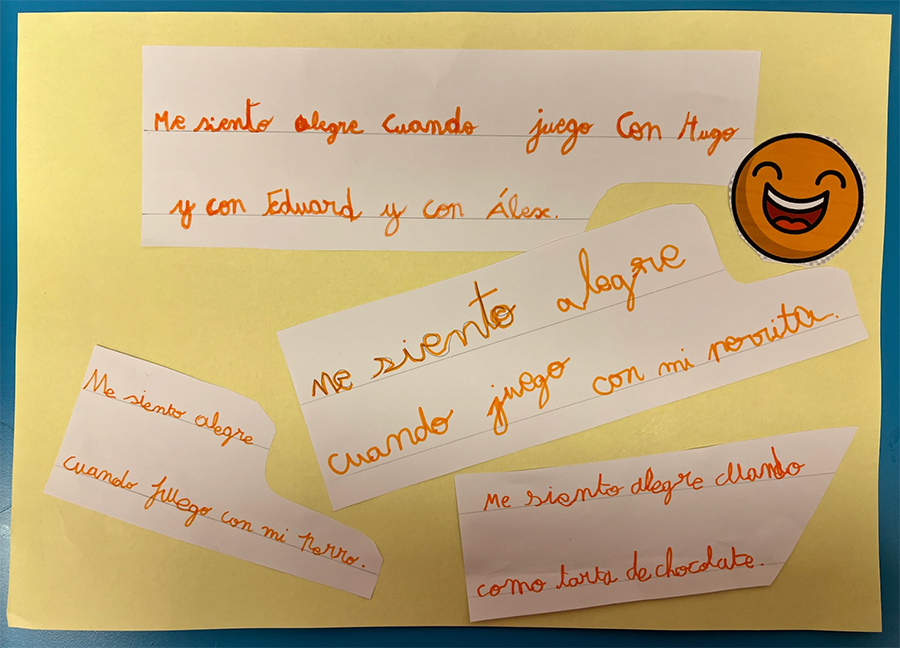 Me siento alegre cuando juego con Hugo
y con Eduard y con Álex.
Me siento alegre
cuando juego con mi perrita.
Me siento alegre
cuando juego con mi perro.
Me siento alegre cuando
como tarta de chocolate.